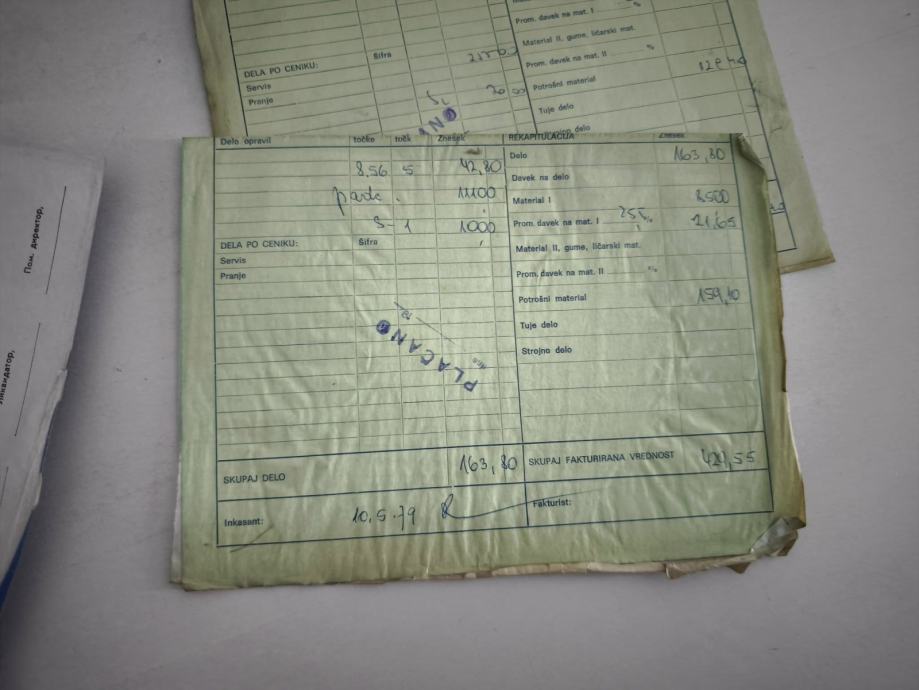 Prom. davek na mat. I %
Material II, gume, ličarski mat.
DELA PO CENIKU: Šifra
Prom. davek na mat. II %
Servis
Potrošni material
Pranje
Tuje delo
Delo opravil točke točk Znesek
REKAPITULACIJA Znesek
8,56 5 42,80
Delo 163,80
Davek na delo
11100
Material I 8500
S-1 1000
Prom. davek na mat. I 25% 21,65
DELA PO CENIKU: Šifra
Material II, gume, ličarski mat.
Servis
Pranje
Prom. davek na mat. II %
Potrošni material 159,10
Tuje delo
Strojno delo
PLAČANO
SKUPAJ DELO 163,80
SKUPAJ FAKTURIRANA VREDNOST 429,55
Inkasant: 10.5.79
Fakturist:
Пом. директор,
Ликвидатор,